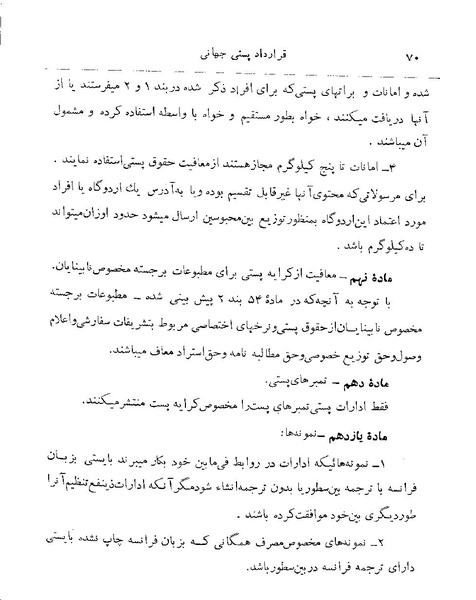 ۷۰ قرارداد پستی جهانی
شده و امانات و براتهای پستی‌که برای افراد ذکر شده دربند ۱ و ۲ میفرستند یا از
آنها دریافت میکنند ، خواه بطور مستقیم و خواه با واسطه استفاده کرده و مشمول
آن میباشند .
۴ــ امانات تا پنج کیلوگرم مجازهستند ازمعافیت حقوق پستی‌استفاده نمایند .
برای مرسولاتی‌که محتوی‌آنها غیرقابل تقسیم بوده ویا به‌آدرس یك اردوگاه یا افراد
مورد اعتماد این‌اردوگاه بمنظورتوزیع بین‌محبوسین ارسال میشود حدود اوزان‌میتواند
تا ده‌کیلوگرم باشد .
مادهٔ نهم ــ معافیت ازکرایه پستی برای مطبوعات برجسته مخصوص‌نابینایان.
با توجه به آنچه‌که در مادهٔ ۵۴ بند ۲ پیش بینی شده ــ مطبوعات برجسته
مخصوص نابینایان‌ازحقوق پستی‌ونرخهای اختصاصی مربوط بتشریفات سفارشی‌واعلام
وصول‌وحق توزیع خصوصی‌وحق مطالبه نامه وحق‌استراد معاف میباشند.
مادهٔ دهم ــ تمبرهای‌پستی.
فقط ادارات پستی‌تمبرهای پست‌را مخصوص‌کرایه پست منتشرمیکنند.
مادهٔ یازدهم ــ نمونه‌ها:
۱ــ نمونه‌هائیکه ادارات در روابط فی‌مابین خود بکار میبرند بایستی بزبان
فرانسه با ترجمه بین‌سطوریا بدون ترجمه‌انشاء شودمگرآنکه ادارات‌ذینفع‌تنظیم‌آنرا
طوردیگری بین‌خود موافقت‌کرده باشند .
۲ــ نمونه‌های مخصوص‌مصرف همگانی که بزبان فرانسه چاپ نشده بایستی
دارای ترجمه فرانسه دربین‌سطورباشد.